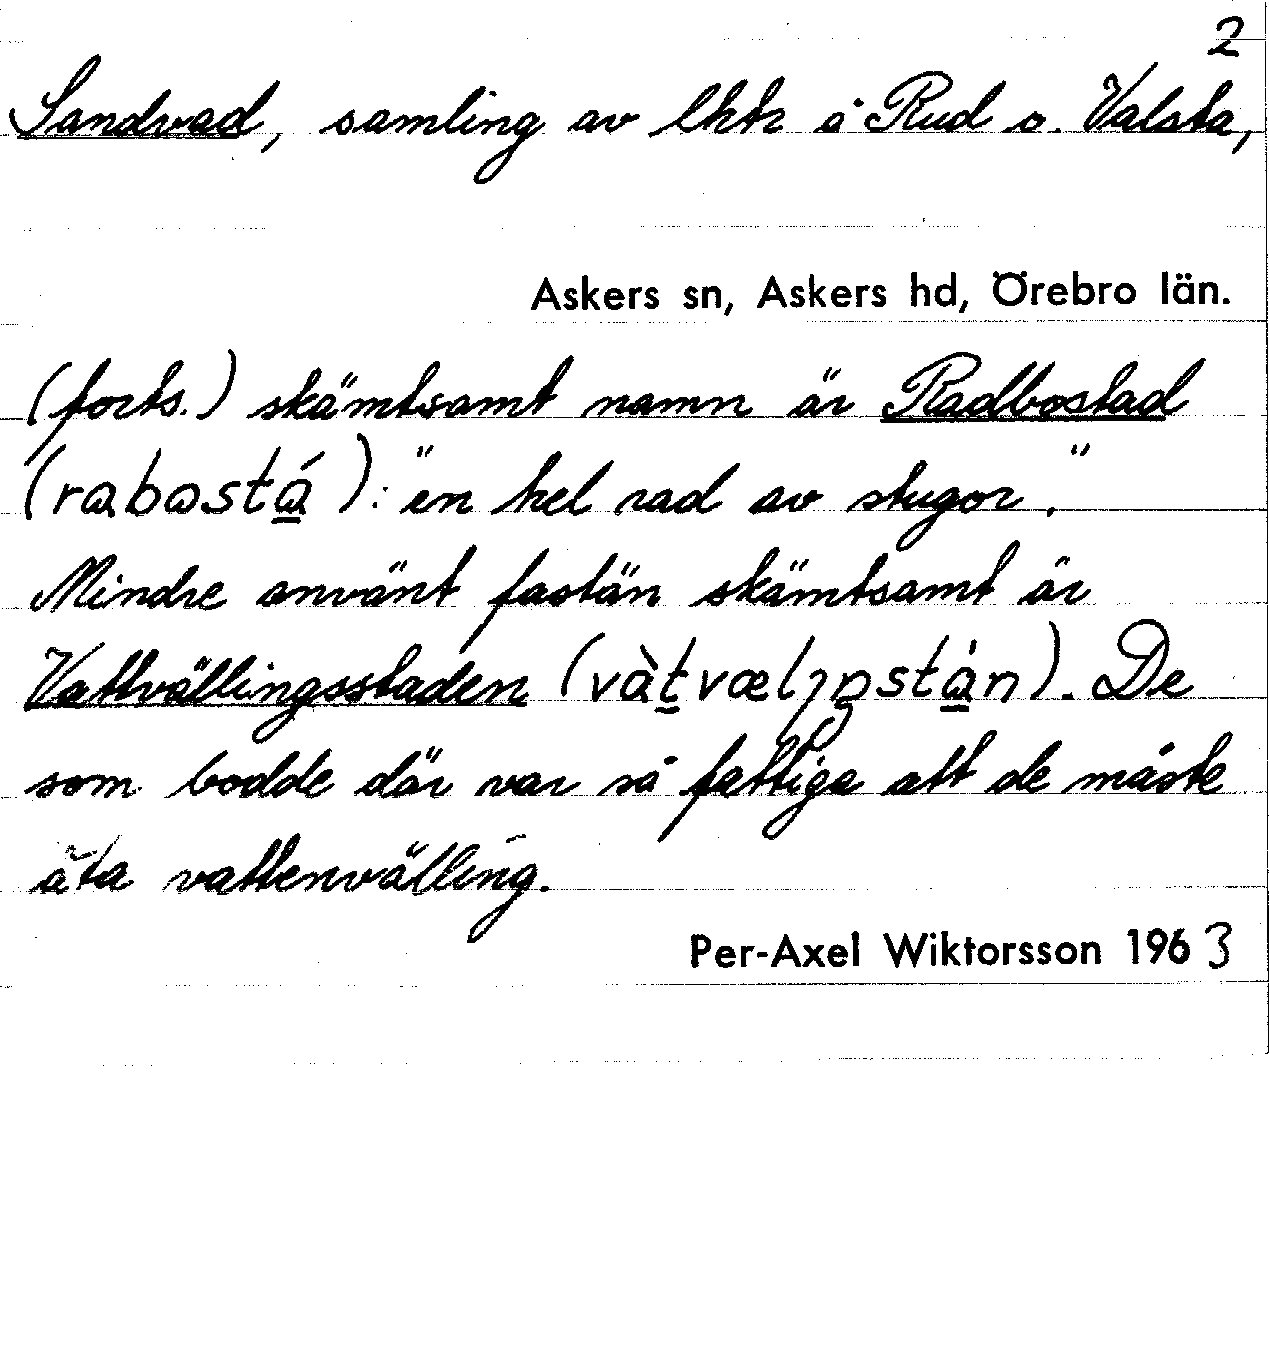 2
Sandvad, samling av lhtr å Rud o. Valsta,
Askers sn, Askers hd, Örebro län.
(forts.) skämtsamt namn är Radbostad
(rabostá): "en hel rad av stugor."
Mindre använt fastän skämtsamt är
Vattvällingsstaden (vàtvælıŋstán). De
som bodde där var så fattiga att de måste
äta vattenvälling.
Per-Axel Wiktorsson 1963